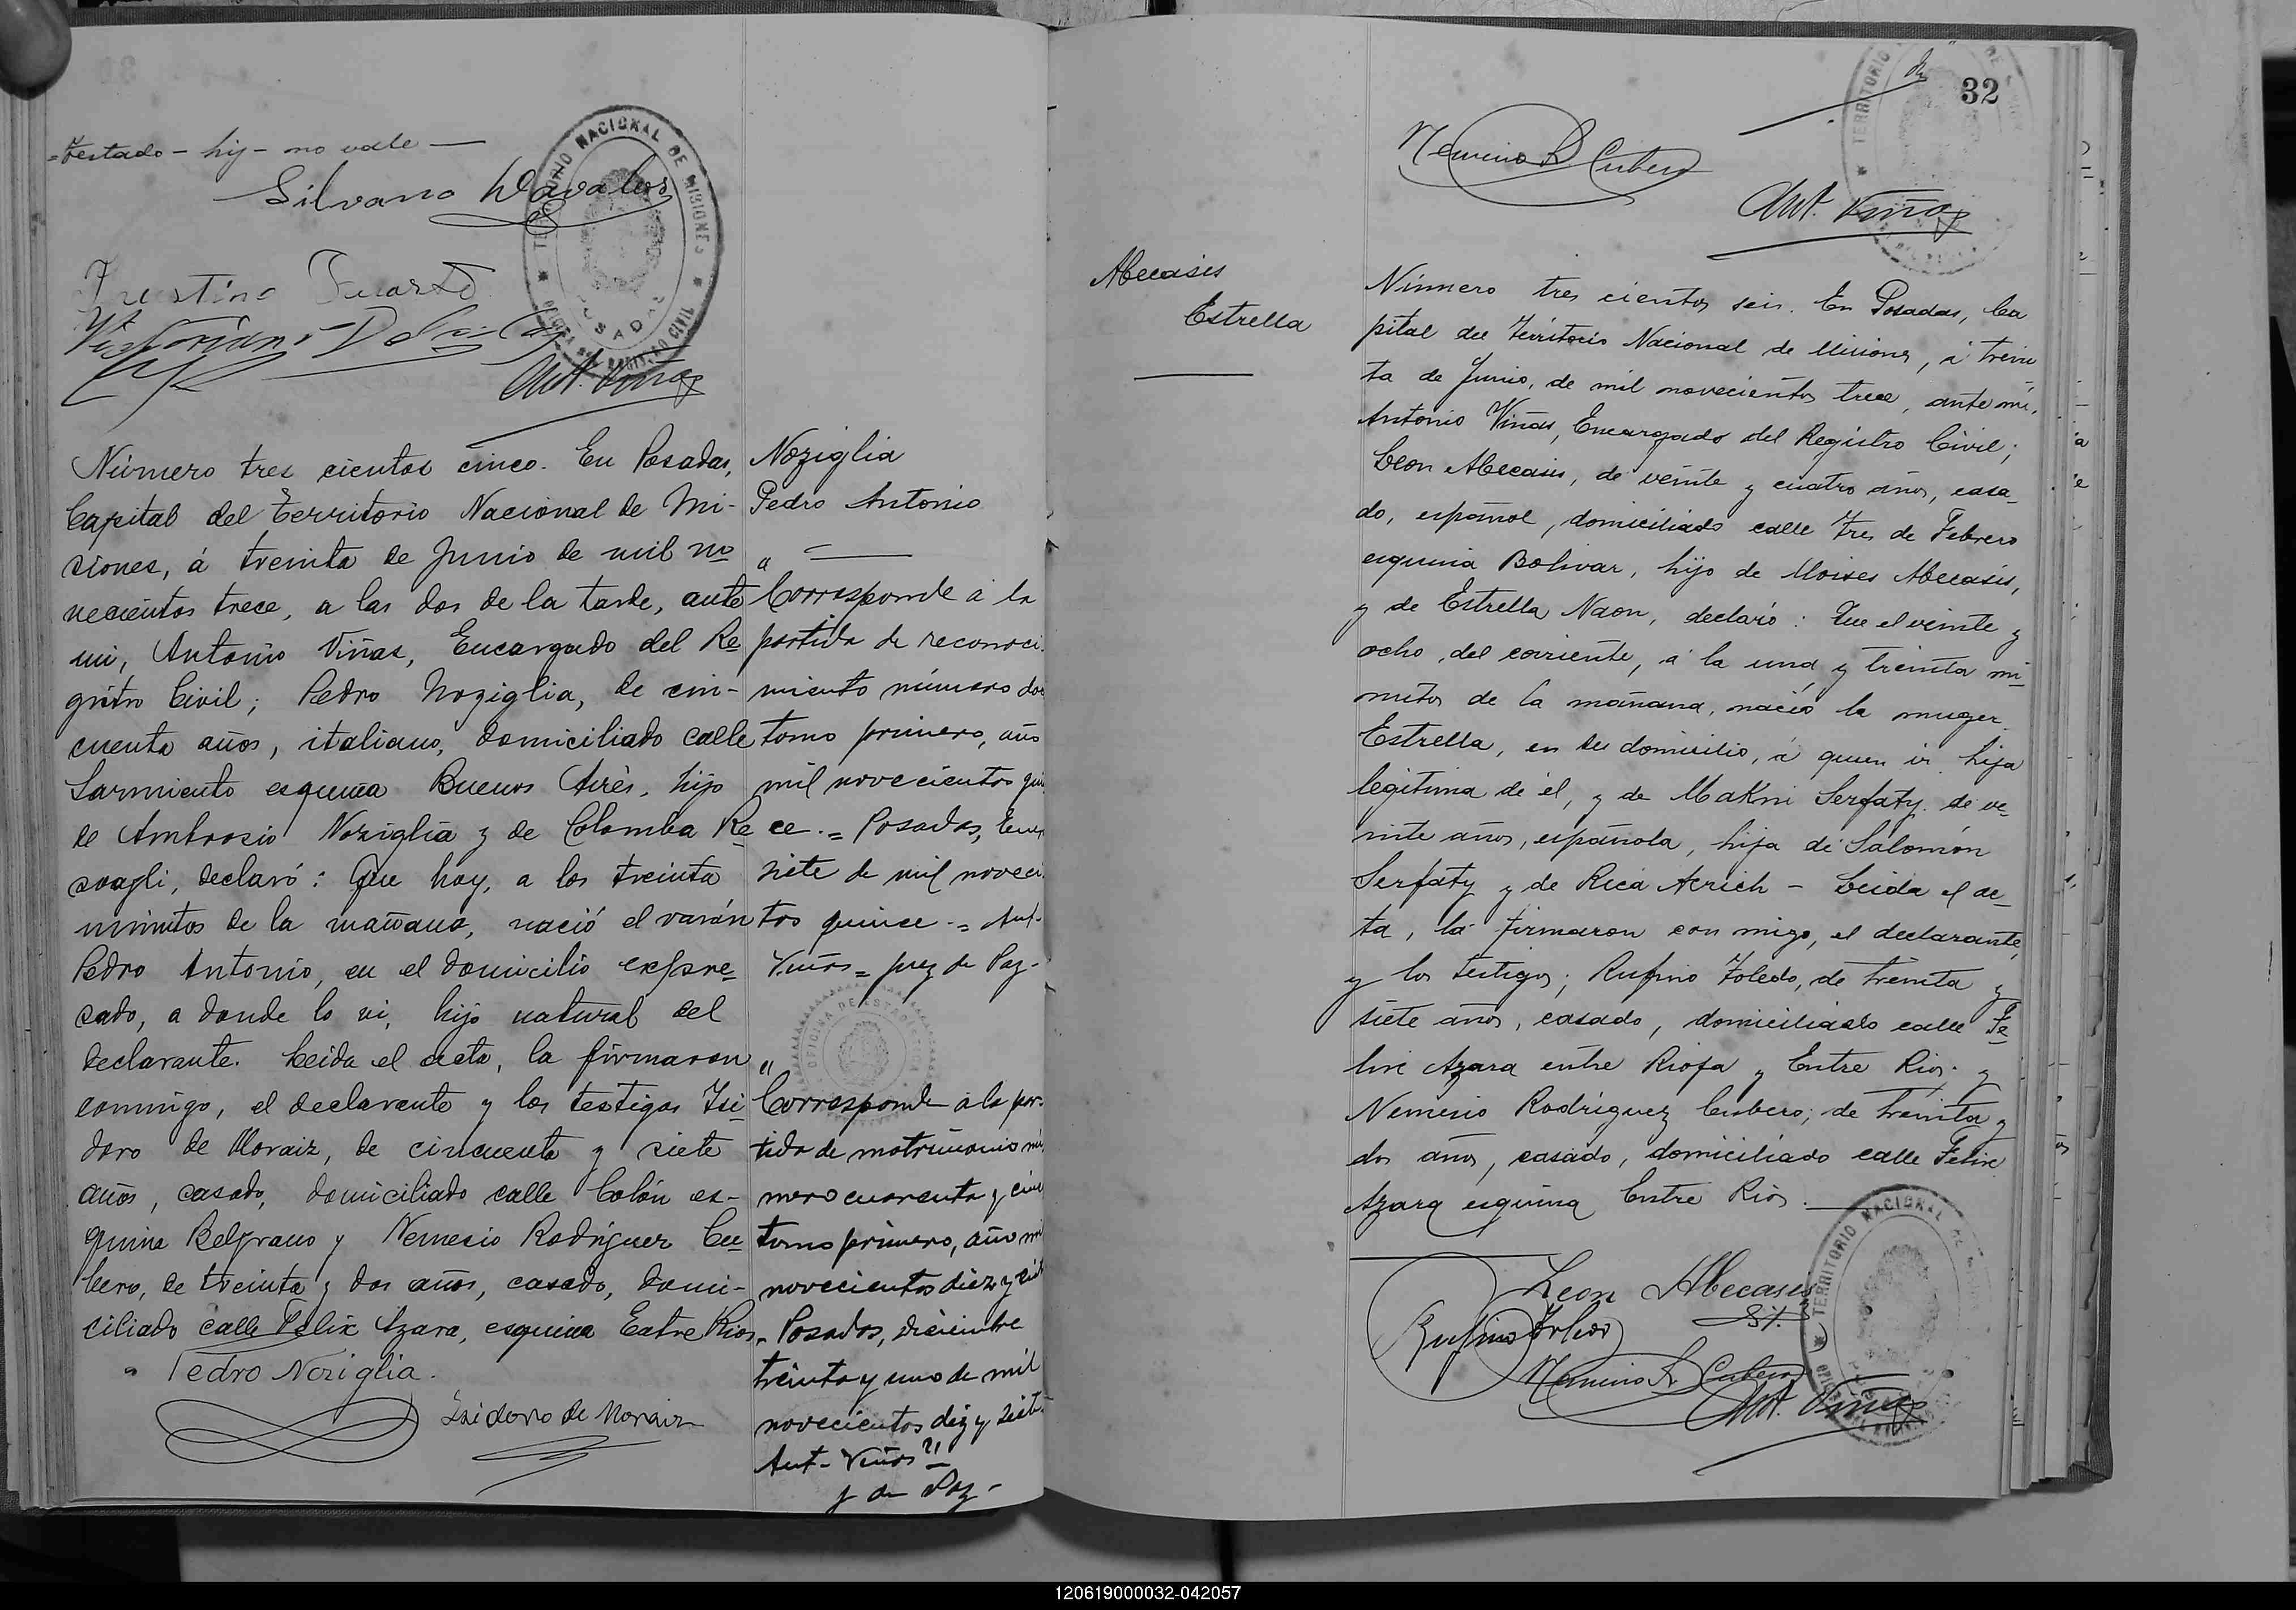 =Testado - hij - no vale —
Silvano Davalos
TERRITORIO NACIONAL DE MISIONES
POSADAS
OFICINA DEL REGISTRO CIVIL
Ant. Viñas
Número tres cientos cinco. En Posadas,
Capital del Territorio Nacional de Mi-
siones, á treinta de Junio de mil no
vecientos trece, a las dos de la tarde, ante
mi, Antonio Viñas, Encargado del Re
gistro Civil; Pedro Noziglia, de cin-
cuenta años, italiano, domiciliado calle
Sarmiento esquina Buenos Aires, hijo
de Ambrosio Noziglia y de Colomba Re
zoagli, declaró: Que hoy, a los treinta
minutos de la mañana, nació el varón
Pedro Antonio, en el domicilio expre-
sado, a donde lo vi, hijo natural del
declarante. Leida el acta, la firmaron
conmigo, el declarante y los testigos Isi
doro de Moraiz, de cincuenta y siete
años, casado, domiciliado calle Colón es-
quina Belgrano y Nemesio Rodríguez Cu
bero, de treinta y dos años, casado, domi-
ciliado calle Felix Azara, esquina Entre Rios.
Pedro Noziglia.
Isidoro de Moraiz
Noziglia
Pedro Antonio
" —
Corresponde á la
partida de reconoci-
miento número dos
tomo primero, año
mil novecientos quin
ce .= Posadas, Enero
siete de mil novecien
tos quince .= Ant.
Viñas = juez de Paz-
OFICINA DE ESTADISTICA
"
Corresponde a la par-
tida de matrimonio nú
mero cuarenta y cinco
tomo primero, año mil
novecientos diez y siete
- Posadas, diciembre
treinta y uno de mil
novecientos diez y siete.
Ant- Viñas
J de Paz-
32
TERRITORIO
Nemesio R. Cubero
Ant. Viñas
Abecasis
Estrella
Número tres cientos seis. En Posadas, Ca
pital del Territorio Nacional de Misiones, á trein
ta de Junio, de mil novecientos trece, ante mi,
Antonio Viñas, Encargado del Registro Civil;
Leon Abecasis, de veinte y cuatro años, casa-
do, español, domiciliado calle Tres de Febrero
esquina Bolivar, hijo de Moises Abecasis,
y de Estrella Naon, declaró: Que el veinte y
ocho, del corriente, á la una y treinta mi-
nutos de la mañana, nació la muger
Estrella, en su domicilio, á quien vi hija
legitima de él, y de Makni Serfaty. de ve-
inte años, española, hija de Salomón
Serfaty y de Rica Acrich - Leida el ac-
ta, la firmaron con migo, el declarante,
y los testigos; Rufino Toledo, de treinta y
siete años, casado, domiciliado calle Fe-
lix Azara entre Rioja y Entre Rios. y
Nemesio Rodriguez Cubero; de treinta y
dos años, casado, domiciliado calle Felix
Azara esquina Entre Rios.
Leon Abecasis
Rufino Toledo
Nemesio R. Cubero
Ant. Viñas
TERRITORIO NACIONAL DE
120619000032-042057